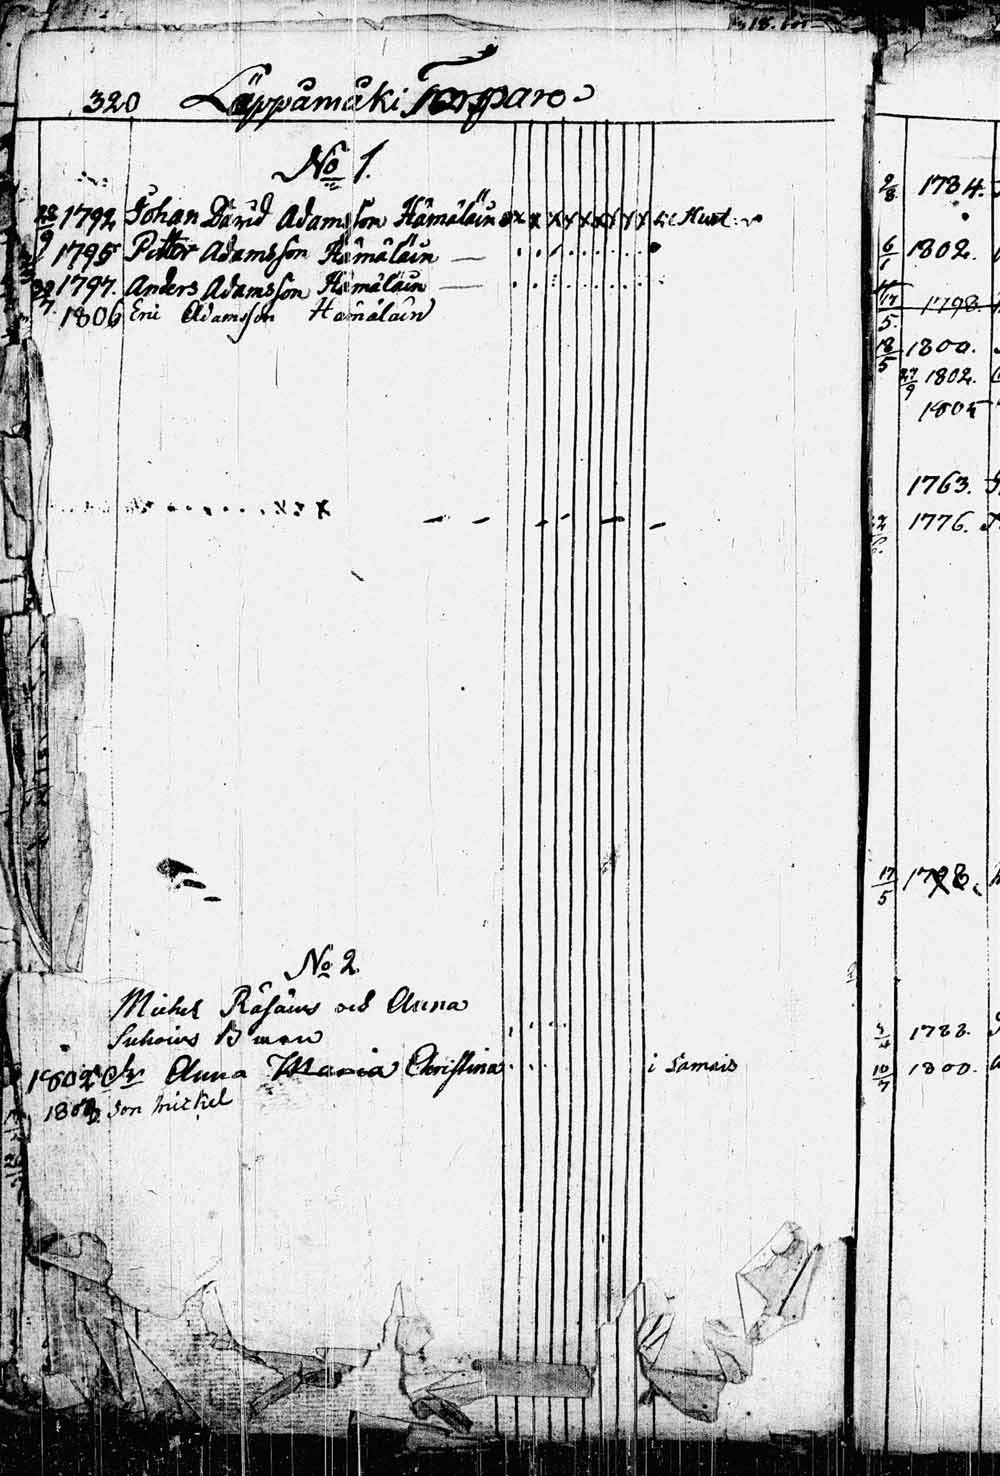 320 Läppämäki Torpare
No 1.
28/9 1792 Johan David Adamsson Hämäläin
1795 Petter Adamsson Hämäläin —
1797. Anders Adamsson Hämäläin —
1806 Eric Adamsson Hämäläin
No 2
Michel Räsäins och Anna
Suhoins Barn
1802 dr Anna Maria Christina i Samais
180 Son Mickel
1784.
6/1 1802.
17/5. 1798.
18/5 1800.
27/9 1802.
1805
1763.
1776.
17/5 1798.
1788.
10/7 1800.